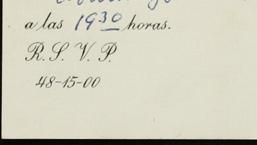 a las 1930 horas.
R. S. V. P.
48-15-00